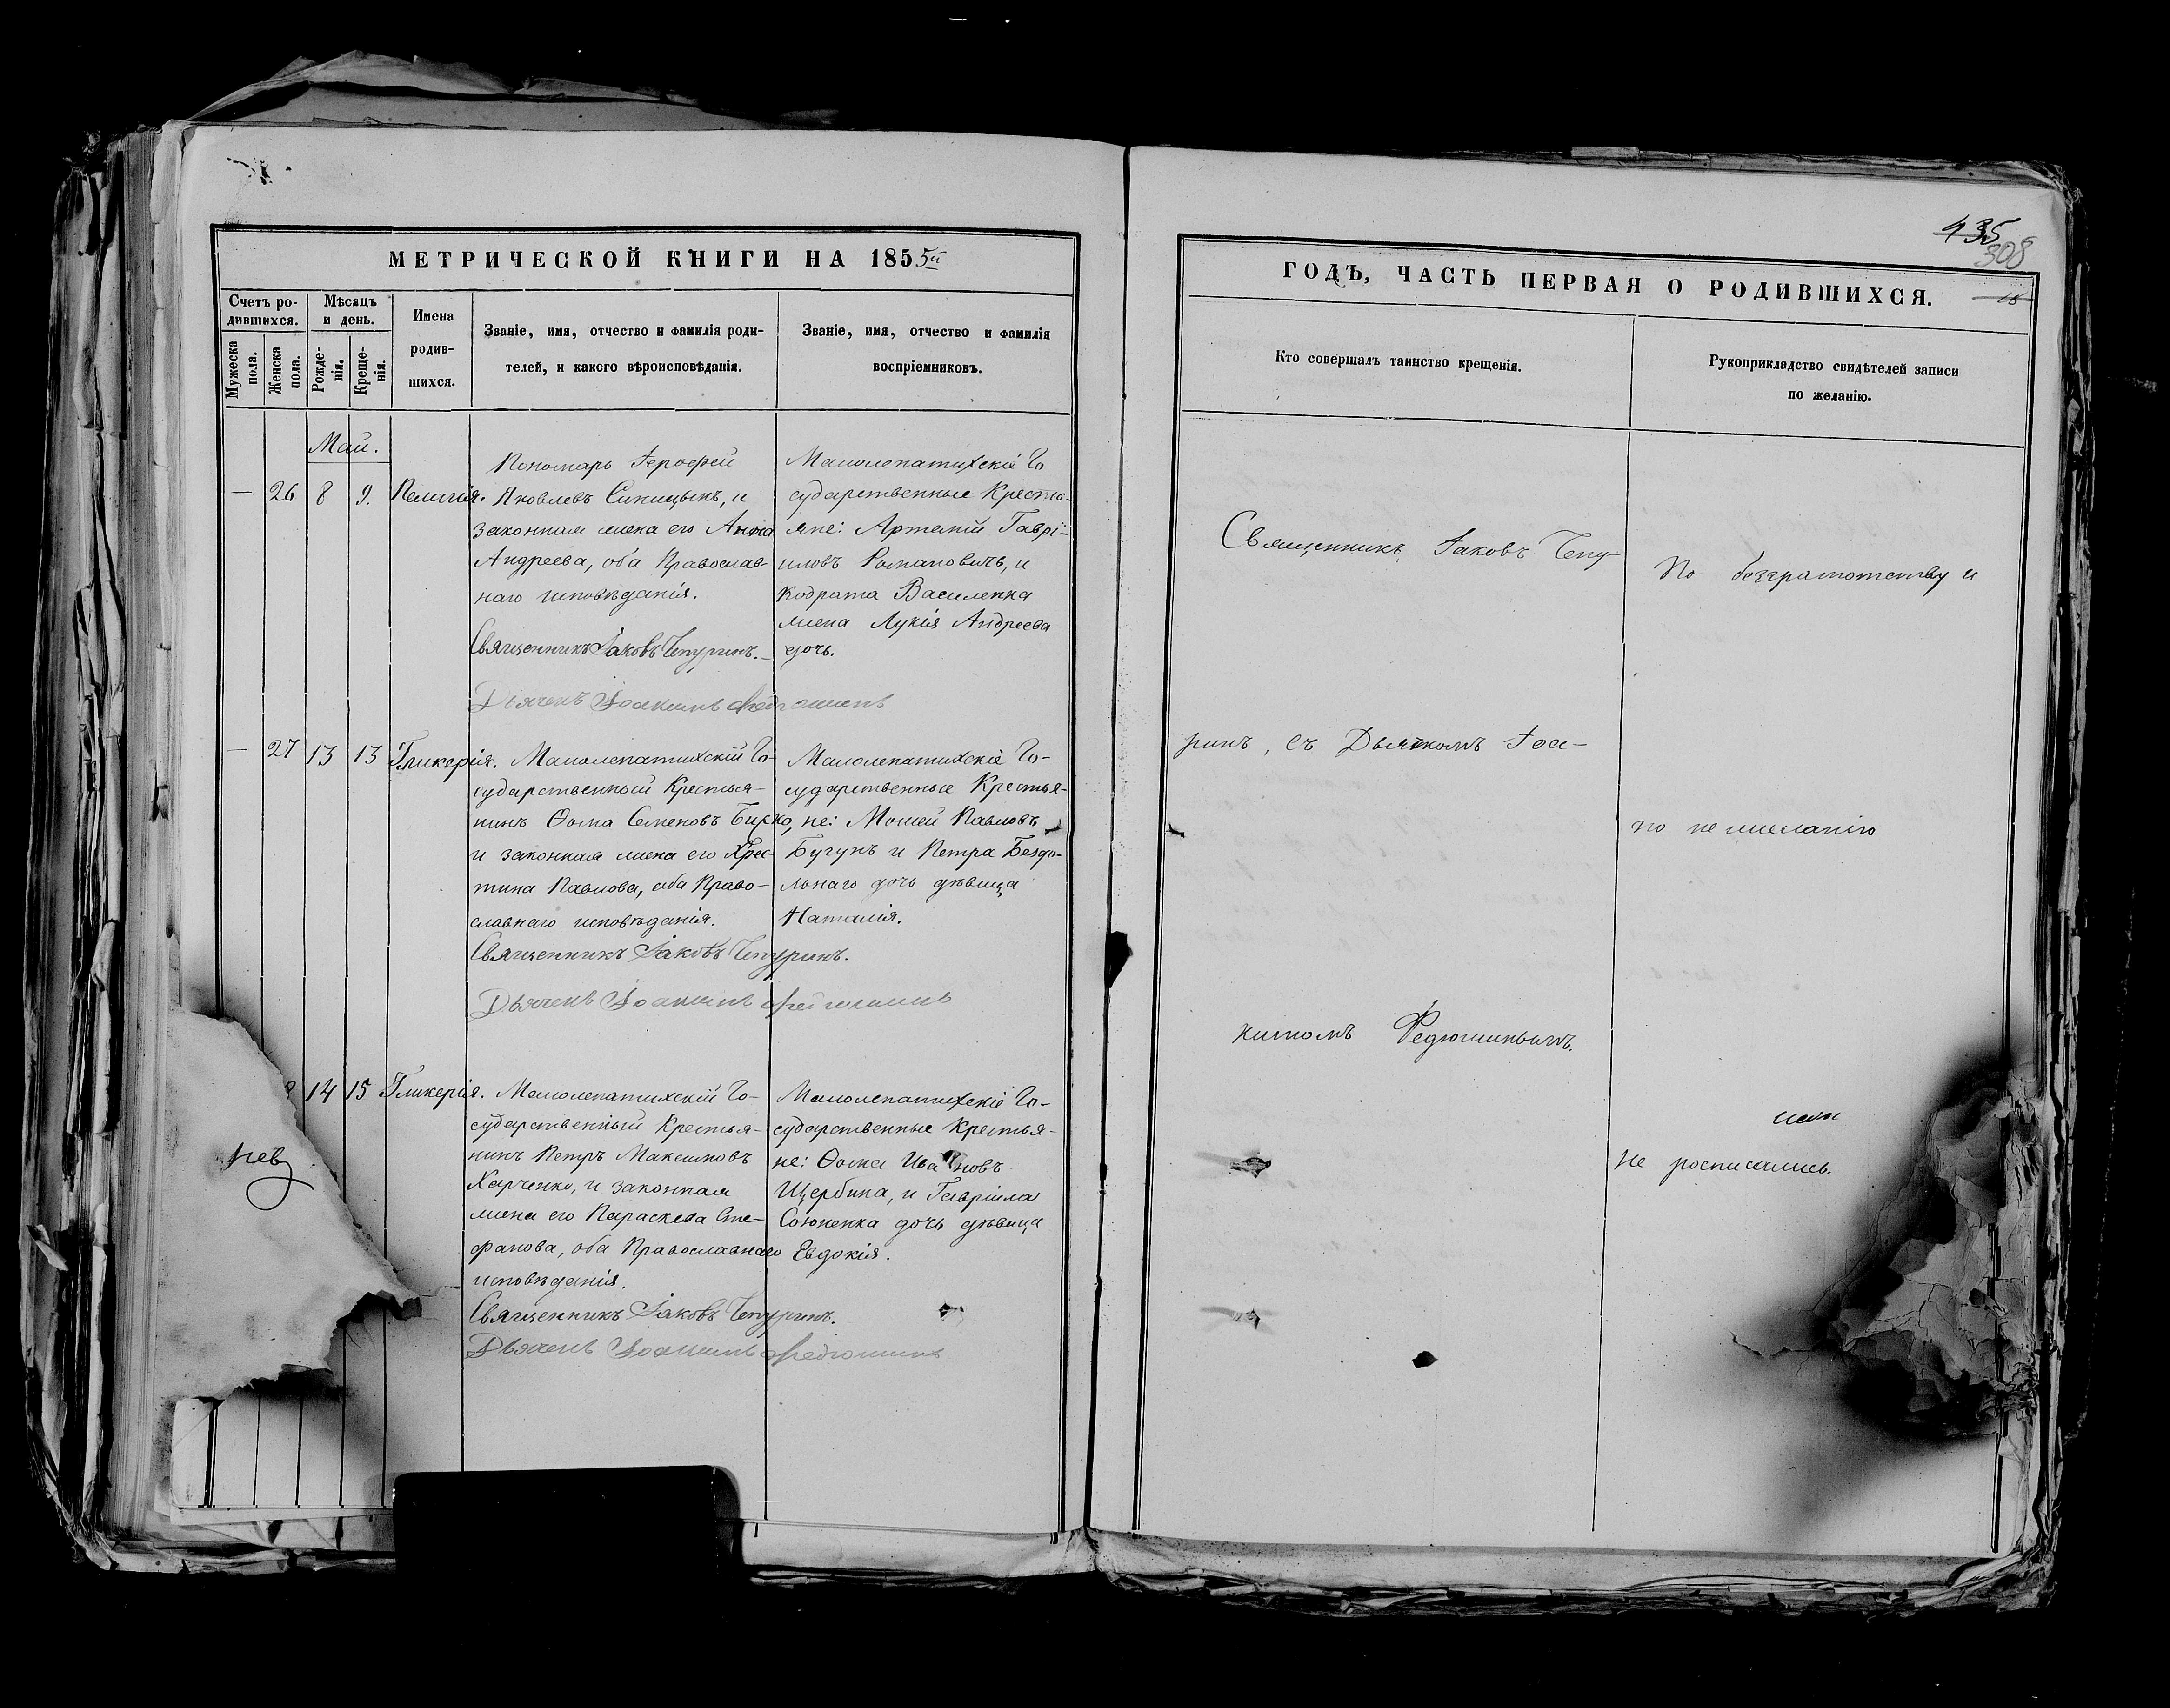 МЕТРИЧЕСКОЙ КНИГИ НА 1855й
Счетъ ро-
дившихся.
Мѣсяцъ
и день.
Мужеска
пола.
Женска
пола.
Рожде-
нія.
Креще-
нія.
Имена
родив-
шихся.
Званіе, имя, отчество и фамилія роди-
телей, и какого вѣроисповѣданія.
Званіе, имя, отчество и фамилія
воспріемниковъ.
Май.
— 26 8 9. Пелагія.
Пономарь Іерофей
Яковлевъ Синицынъ, и
законная жена его Анна
Андреева, оба Православ-
наго исповѣданія.
Священникъ Іаковъ Чепуринъ.
Дьячекъ Іоакимъ Федюшинъ
Малолепатихскіе Го
сударственные Крестья-
яне: Артемій Гаврі-
иловъ Романовичъ, и
Кодрата Василенка
жена Лукія Андреева
дочь.
— 27 13 13 Гликерія.
Малолепатихскій Го-
сударственный Крестья-
нинъ Ѳома Семеновъ Бирко,
и законная жена его Хрис-
тина Павлова, оба Право-
славнаго исповѣданія.
Священникъ Іаковъ Чепуринъ.
Дьячекъ Іоакимъ Федюшинъ
Малолепатихскіе Го-
сударственные Крестья-
не: Мойсей Павловъ
Бугунъ и Петра Бездо-
льнаго дочь дѣвица
Наталія.
14 15 Гликерія.
Малолепатихскій Го-
сударственный Крестья-
нинъ Петръ Максимовъ
Харченко, и законная
жена его Параскева Сте-
фанова, оба Православнаго
исповѣданія.
Священникъ Іаковъ Чепуринъ.
Дьячекъ Іоакимъ Федюшинъ
Малолепатихскіе Го-
сударственные Крестья-
не: Ѳома Ивановъ
Щербина, и Гавріила
Союненка дочь дѣвица
Евдокія.
435
308
ГОДЪ, ЧАСТЬ ПЕРВАЯ О РОДИВШИХСЯ.
15
Кто совершалъ таинство крещенія.
Рукоприкладство свидѣтелей записи
по желанію.
Священникъ Іаковъ Чепу-
ринъ, съ Дьячкомъ Іоа-
кимомъ Федюшинымъ.
По безграмотству и
по нежеланію
не росписались.